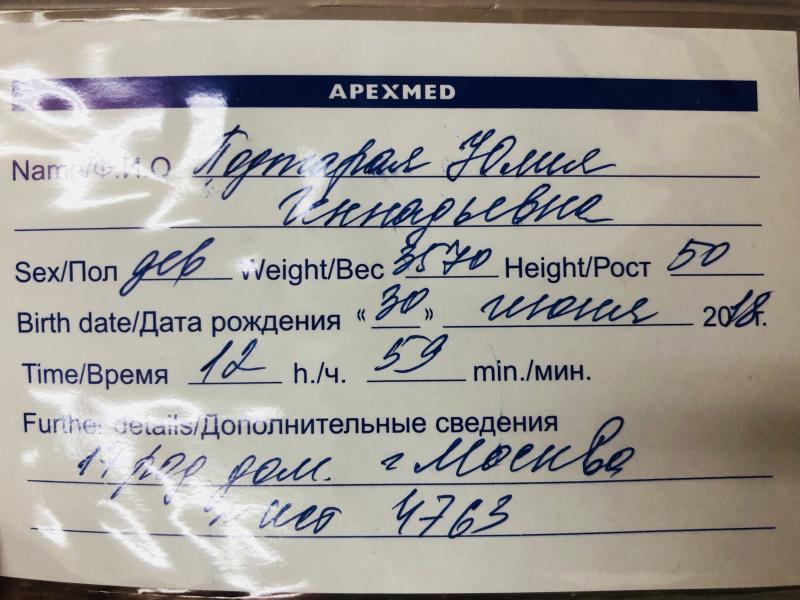 APEXMED
Name/Ф.И.О Поджарая Юлия
Геннадьевна
Sex/Пол дев Weight/Вес 3570 Height/Рост 50
Birth date/Дата рождения «30» июня 2018г.
Time/Время 12 h./ч. 59 min./мин.
Further details/Дополнительные сведения
род дом. г Москва
ист 4763